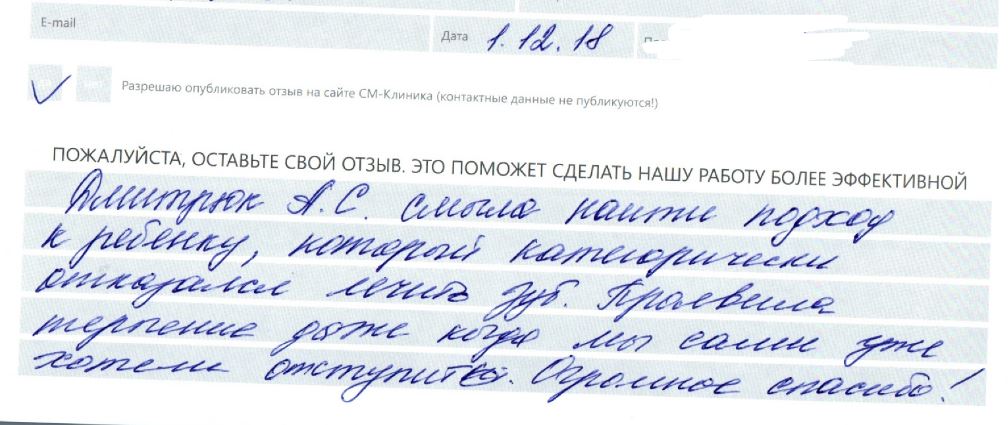 E-mail
Дата 1.12.18
Разрешаю опубликовать отзыв на сайте СМ-Клиника (контактные данные не публикуются!)
ПОЖАЛУЙСТА, ОСТАВЬТЕ СВОЙ ОТЗЫВ. ЭТО ПОМОЖЕТ СДЕЛАТЬ НАШУ РАБОТУ БОЛЕЕ ЭФФЕКТИВНОЙ
Дмитрюк А.С. смогла найти подход
к ребенку, который категорически
отказался лечить зуб. Проявила
терпение даже когда мы сами уже
хотели отступить. Огромное спасибо!